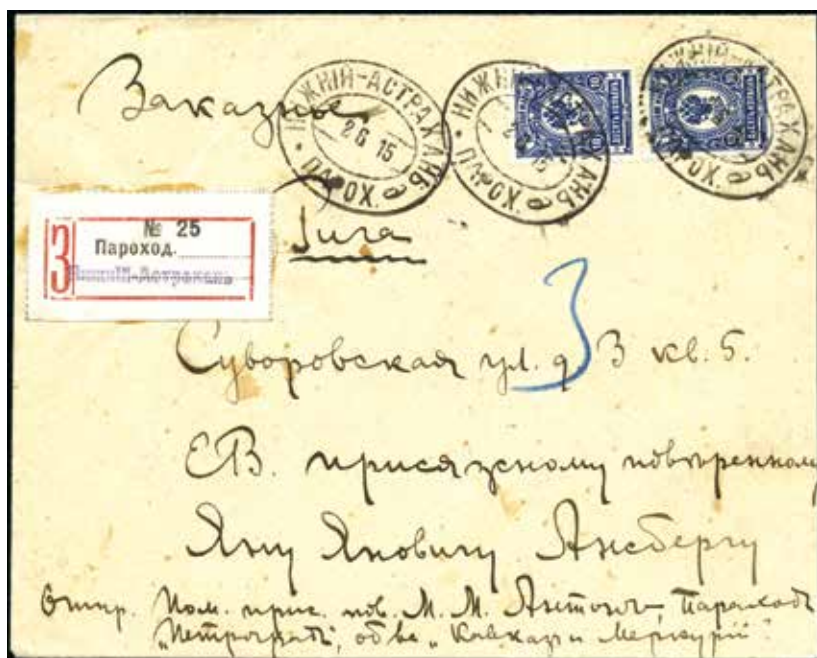 Заказное
НИЖНІЙ-АСТРАХАНЬ
2 6 15
ПАРОХ. а
НИЖНІЙ-АСТРАХАНЬ
ПАРОХ. а
НИЖНІЙ-АСТРАХАНЬ
ПАРОХ. а
З
№ 25
Пароход.
Нижній-Астрахань
Рига
З
Суворовская ул. д 3 кв. 5.
ЕВ. присяжному повѣренному
Яну Яновичу Ансбергу
Отпр. Пом. прис. пов. М. М. Антоновъ, Пароходъ
„Петроградъ", об-ва „Кавказъ и Меркурій"